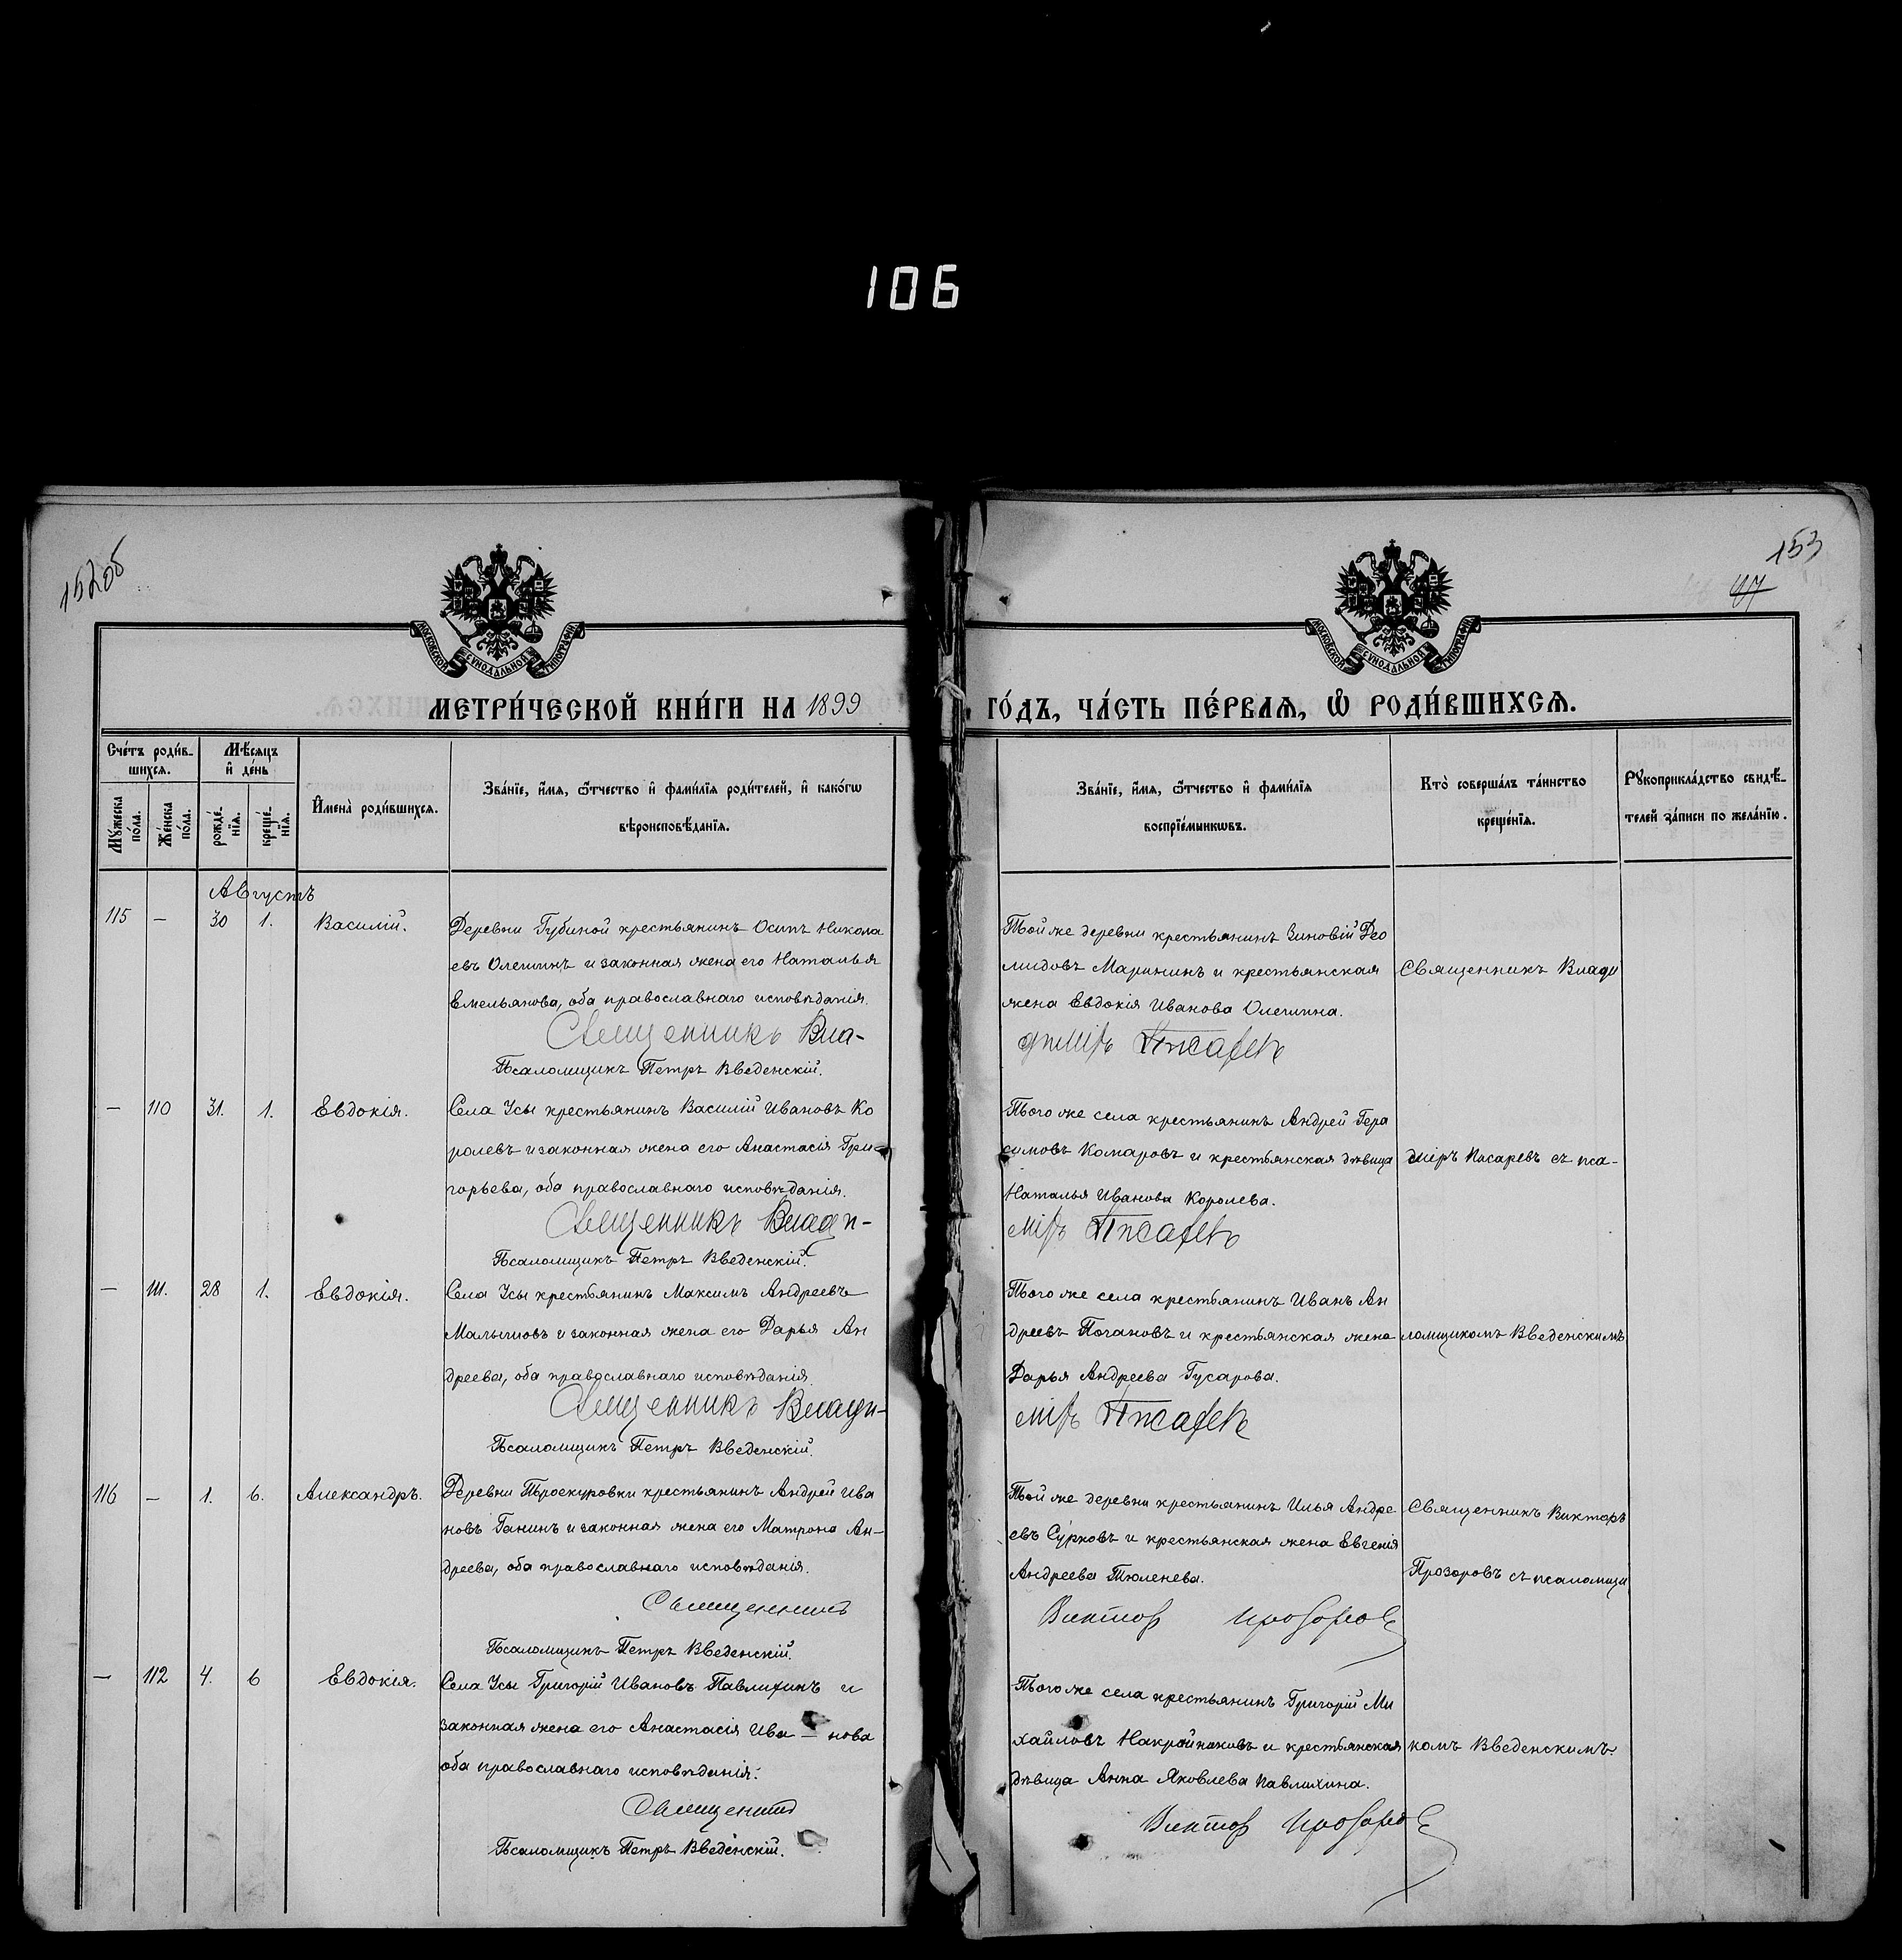 106
152об
153
97
МОСКОВСКОЙ СѴНОДАЛЬНОЙ ТИПОГРАФІИ
МОСКОВСКОЙ СѴНОДАЛЬНОЙ ТИПОГРАФІИ
МЕТРИ́ЧЕСКОЙ КНИ́ГИ НА 1899
ГО́ДЪ, ЧА́СТЬ ПЕ́РВАѦ, Ѡ РОДИ́ВШИХСѦ.
Сче́тъ роди́в-
шихсѧ.
Мꙋ́жеска
по́ла.
Же́нска
по́ла.
Мѣ́сѧцъ
и҆ де́нь
рожде́-
нїѧ.
креще́-
нїѧ.
И҆мена̀ роди́вшихсѧ.
Зва́нїе, и҆́мѧ, ѻ҆́тчество и҆ фами́лїѧ роди́телей, и҆ како́гѡ
вѣроисповѣ́данїѧ.
Зва́нїе, и҆́мѧ, ѻ҆́тчество и҆ фами́лїѧ
воспрїе́мникѡвъ.
Кто̀ соверша́лъ та́инство
креще́нїѧ.
Рꙋкоприкла́дство свидѣ́-
телей за́писи по жела́нїю.
Августъ
115 — 30 1. Василій.
Деревни Губиной крестьянинъ Осипъ Никола
евъ Олешинъ и законная жена его Наталья
Емельянова, оба православнаго исповѣданія.
Священникъ Вла-
Псаломщикъ Петръ Введенскій.
Той же деревни крестьянинъ Зиновій Део
мидовъ Марининъ и крестьянская
жена Евдокія Иванова Олешина.
димiръ Писаревъ
Священникъ Влади
— 110 31. 1. Евдокія.
Села Усы крестьянинъ Василій Ивановъ Ко
ролевъ и законная жена его Анастасія Гри-
горьева, оба православнаго исповѣданія.
Священникъ Влади-
Псаломщикъ Петръ Введенскій.
Того же села крестьянинъ Андрей Гера
симовъ Комаровъ и крестьянская дѣвица
Наталья Иванова Королева.
мiръ Писаревъ
міръ Писаревъ съ пса-
— 111. 28 1. Евдокія.
Села Усы крестьянинъ Максимъ Андреевъ
Малышовъ и законная жена его Дарья Ан
дреева, оба православнаго исповѣданія.
Священникъ Влади-
Псаломщикъ Петръ Введенскій.
Того же села крестьянинъ Иванъ Ан
дреевъ Почановъ и крестьянская жена
Дарья Андреева Гусарова.
мiръ Писаревъ
ломщикомъ Введенскимъ
116 — 1. 6. Александръ.
Деревни Проскуровки крестьянинъ Андрей Ива
новъ Ганинъ и законная жена его Матрона Ан-
дреева, оба православнаго исповѣданія.
Священникъ
Псаломщикъ Петръ Введенскій.
Той же деревни крестьянинъ Илья Андре
евъ Сурковъ и крестьянская жена Евгенія
Андреева Тюленева.
Викторъ Прозоровъ
Священникъ Викторъ
Прозоровъ съ псаломщи
— 112 4. 6 Евдокія.
Села Усы Григорій Ивановъ Павлихинъ и
законная жена его Анастасія Ива — нова
оба православнаго исповѣданія.
Священникъ
Псаломщикъ Петръ Введенскій.
Того же села крестьянинъ Григорій Ми
хайловъ и крестьянская
дѣвица Анна Яковлева Павлихина.
Викторъ Прозоровъ
комъ Введенскимъ.